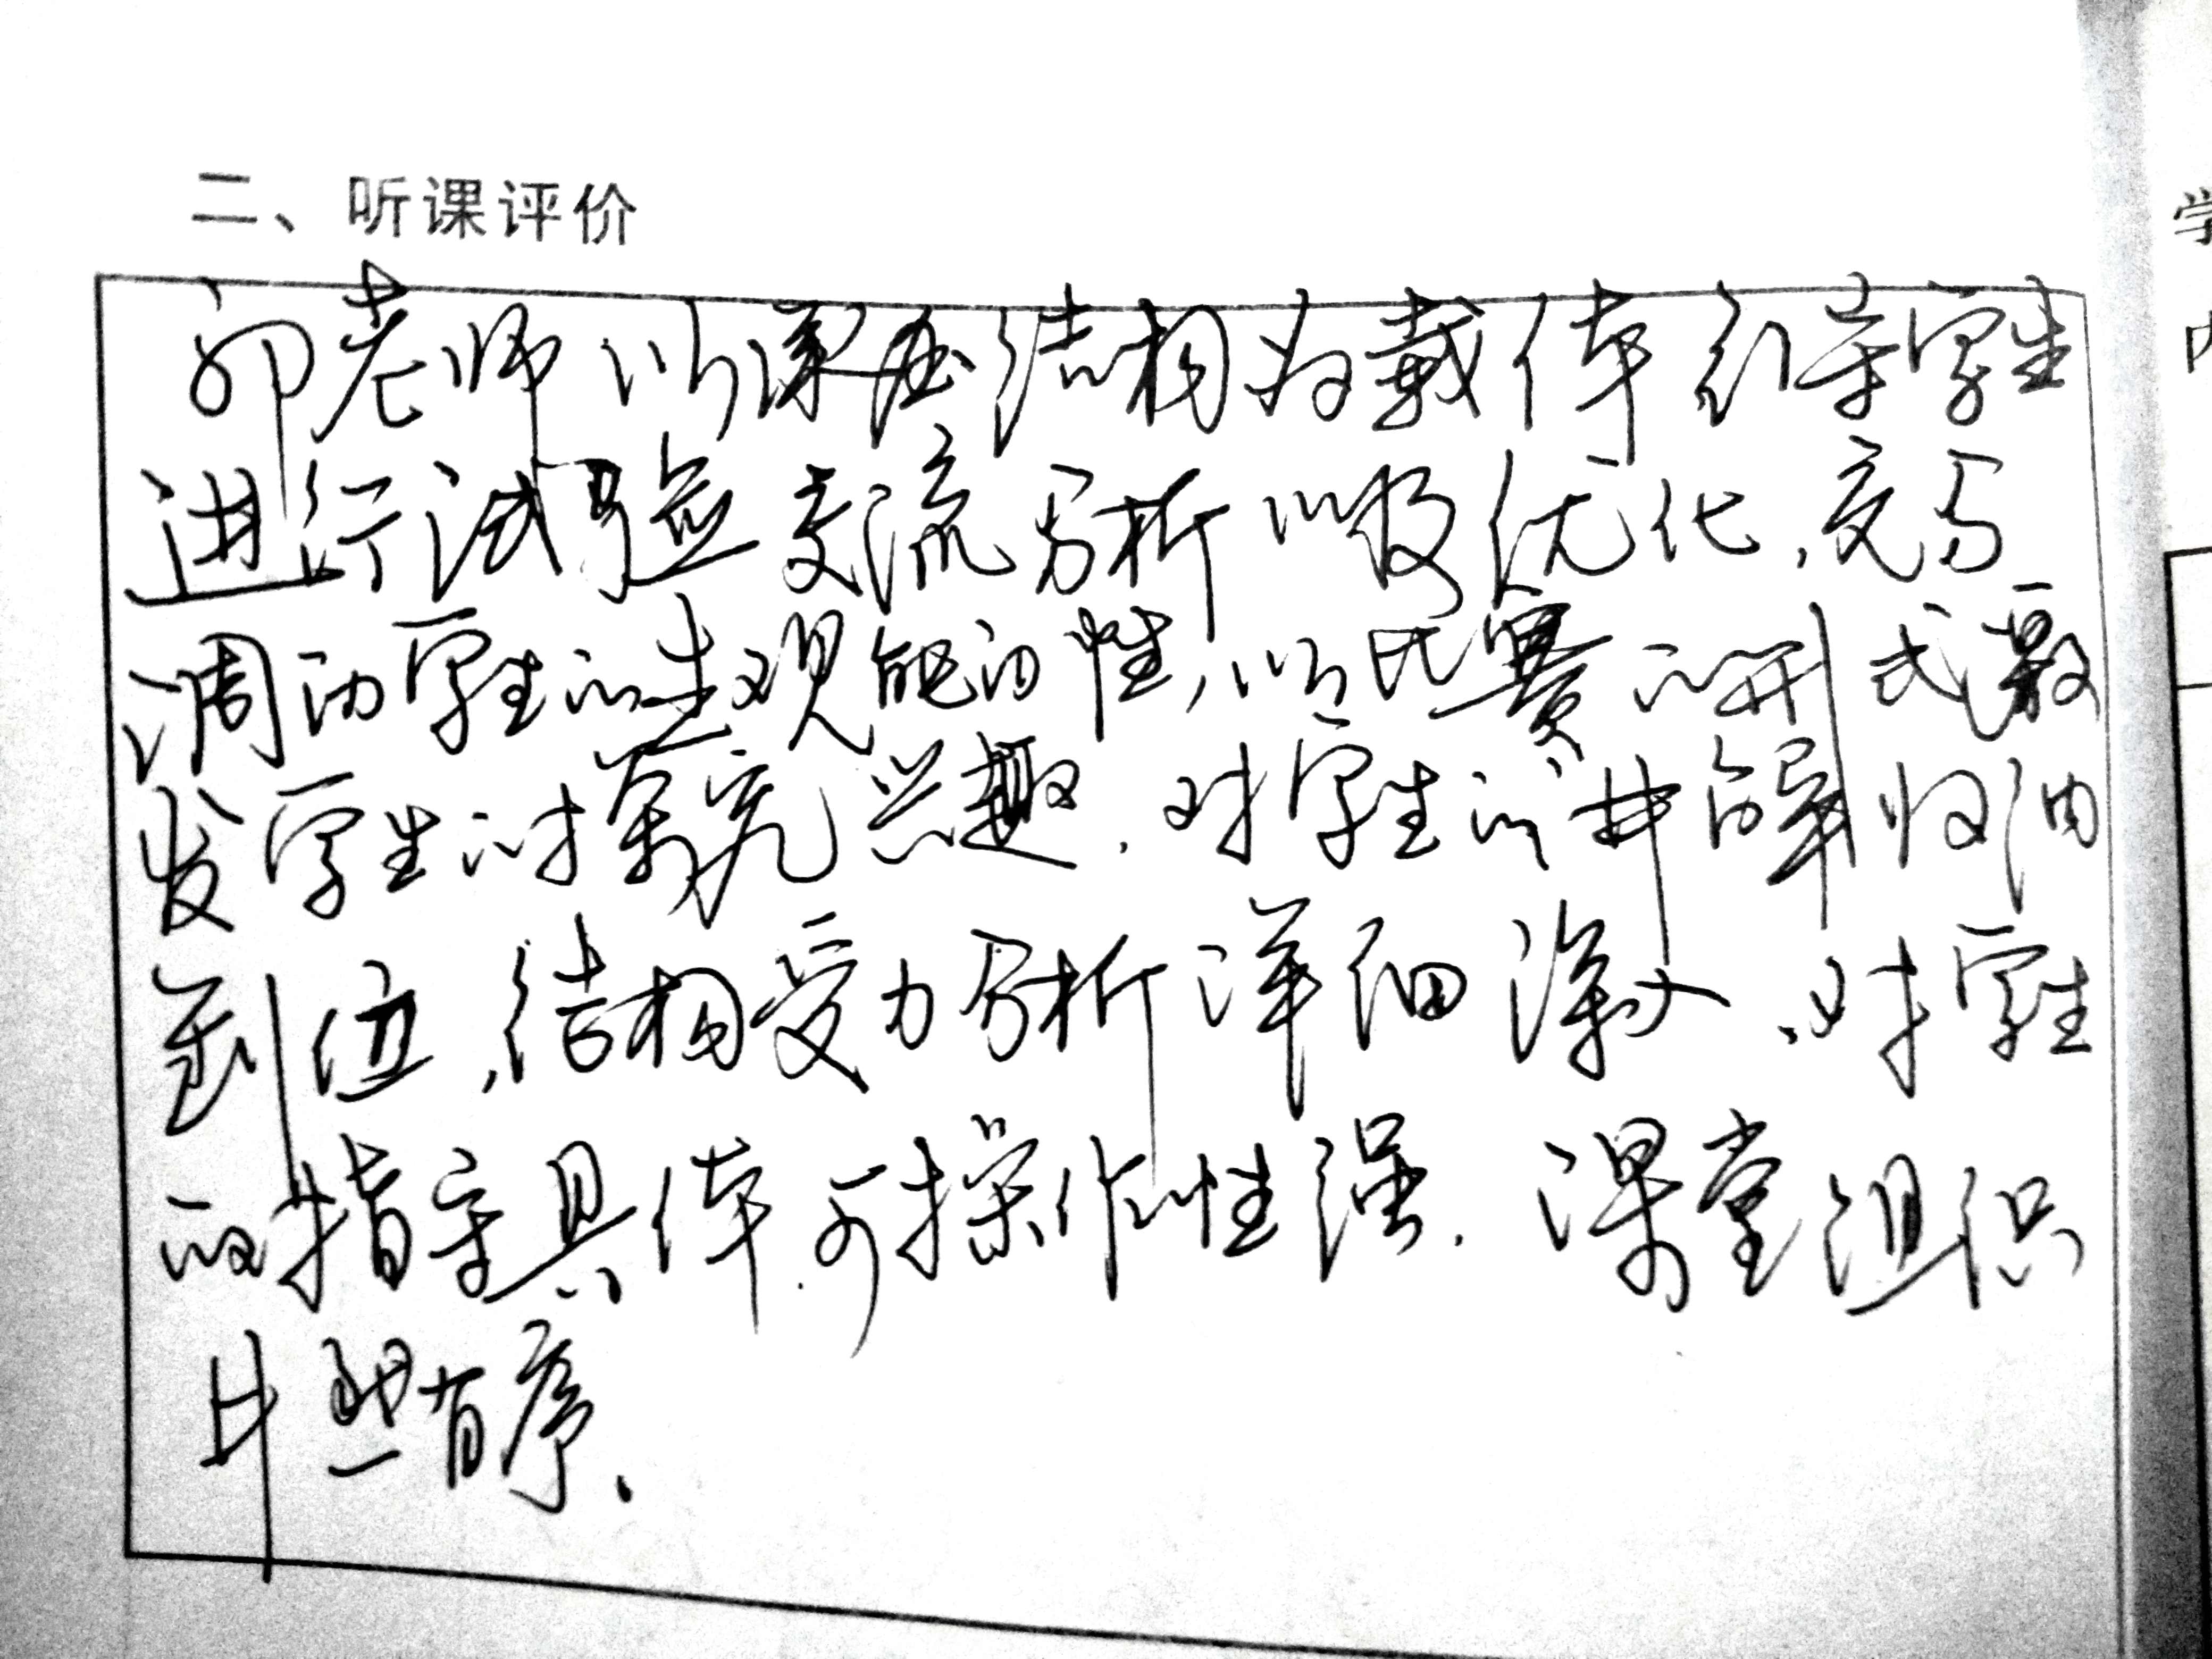 二、听课评价
老师以承压结构为载体 引导学生
进行试验 交流 分析以及优化,充分
调动学生的主观能动性,以比赛的形式激
发学生的探究兴趣.对学生的讲解归纳
到位,结构受力分析详细深入,对学生
的指导具体.可操作性强. 课堂组织
井然有序.
学
内